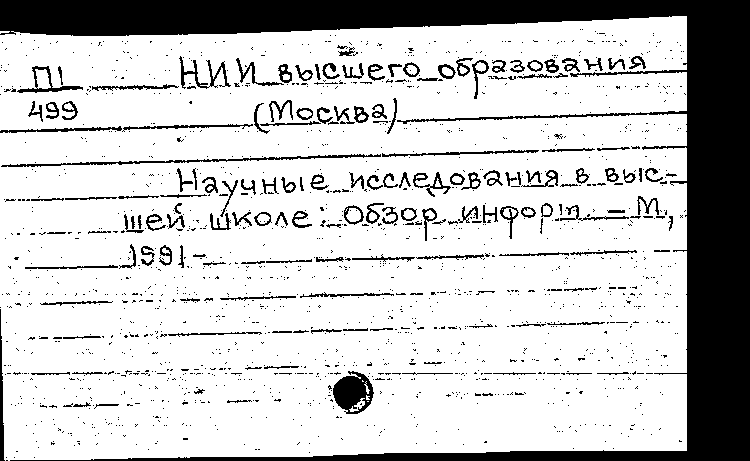 П1 НИИ высшего образования
499 (Москва)
Научные исследования в выс-
шей школе: Обзор информ. – М.,
1991-